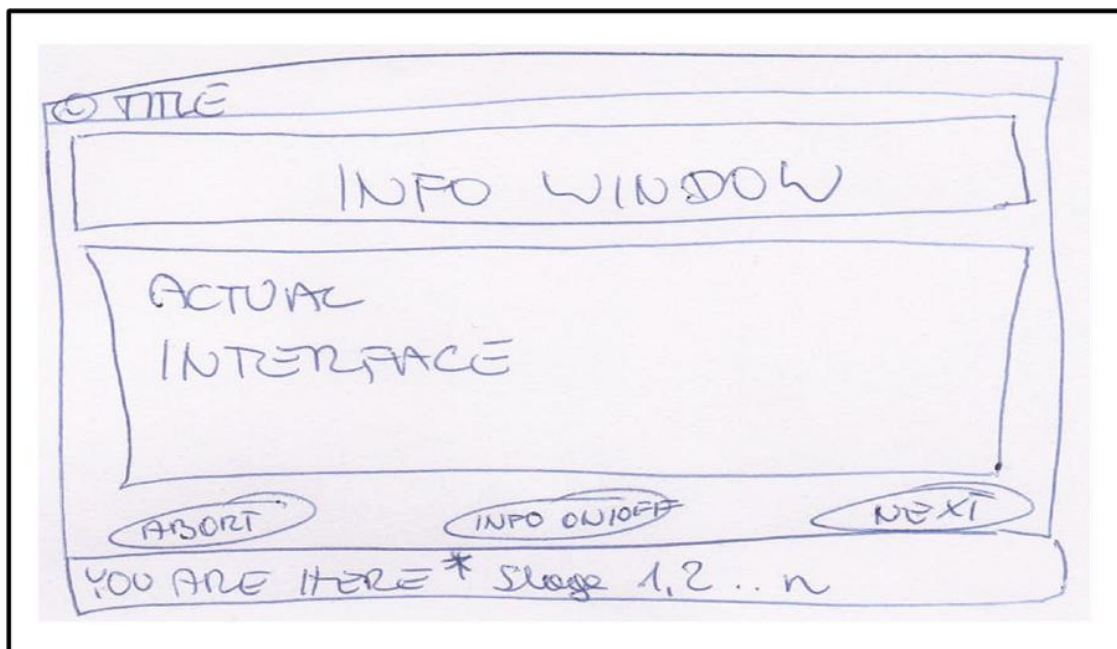 TITLE
INFO WINDOW
ACTUAL
INTERFACE
ABORT
INFO ON/OFF
NEXT
YOU ARE HERE * Stage 1,2 .. n